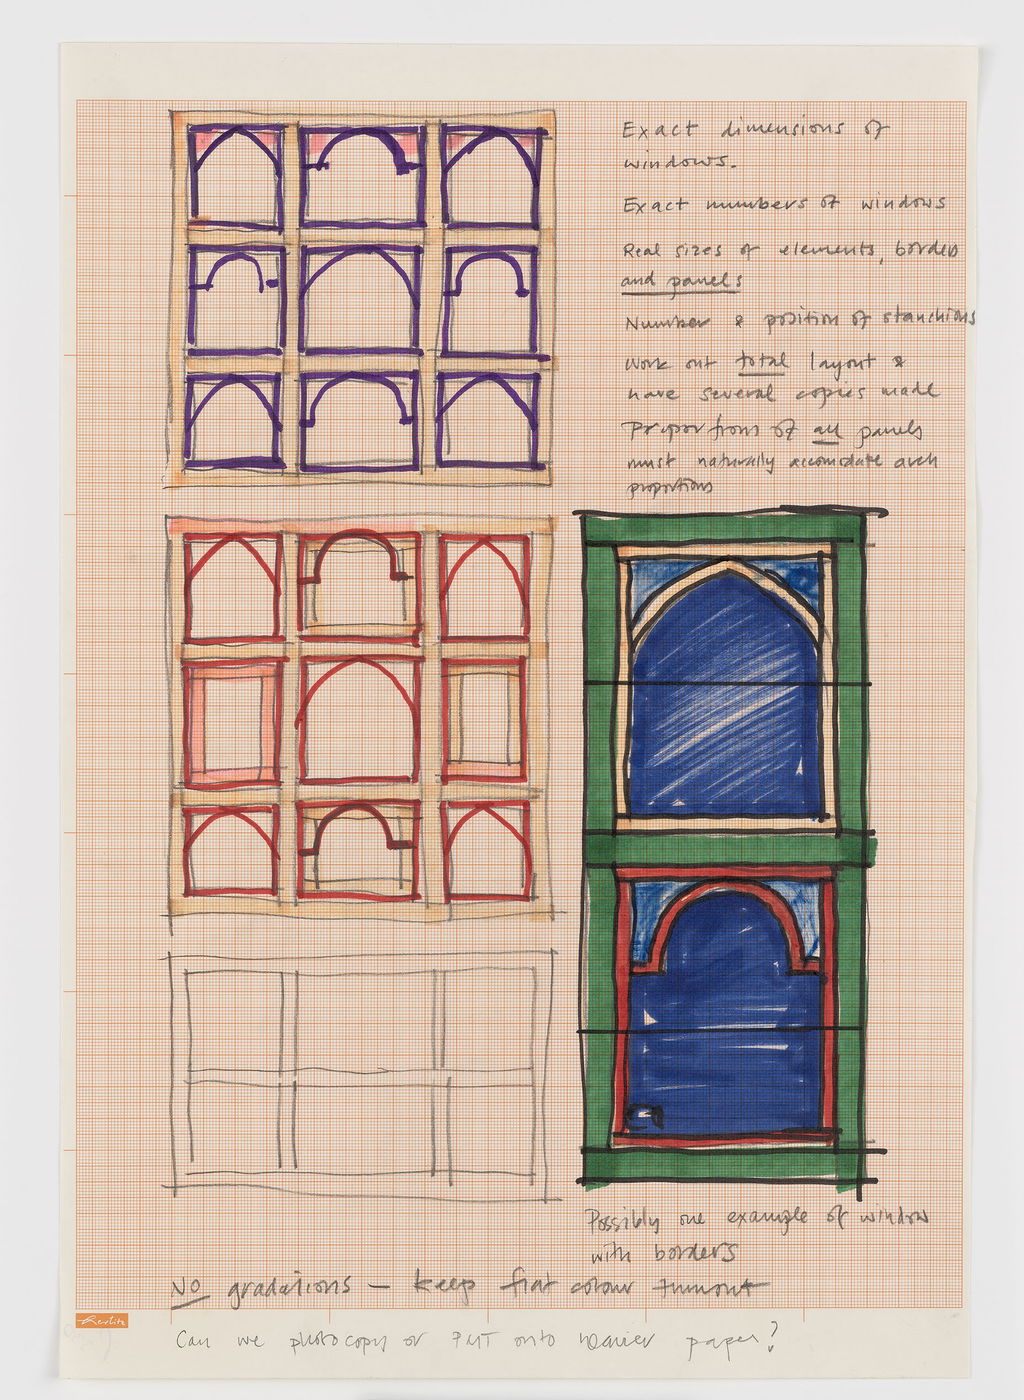 Exact dimensions of
windows.
Exact numbers of windows
Real sizes of elements, borders
and panels
Number & position of stanchions
Work out total layout &
have several copies made
Proportions of all panels
must naturally accomodate arch
proportions
Possibly one example of window
with borders
NO gradations — keep flat colour
Can we photocopy or PMT onto heavier paper?